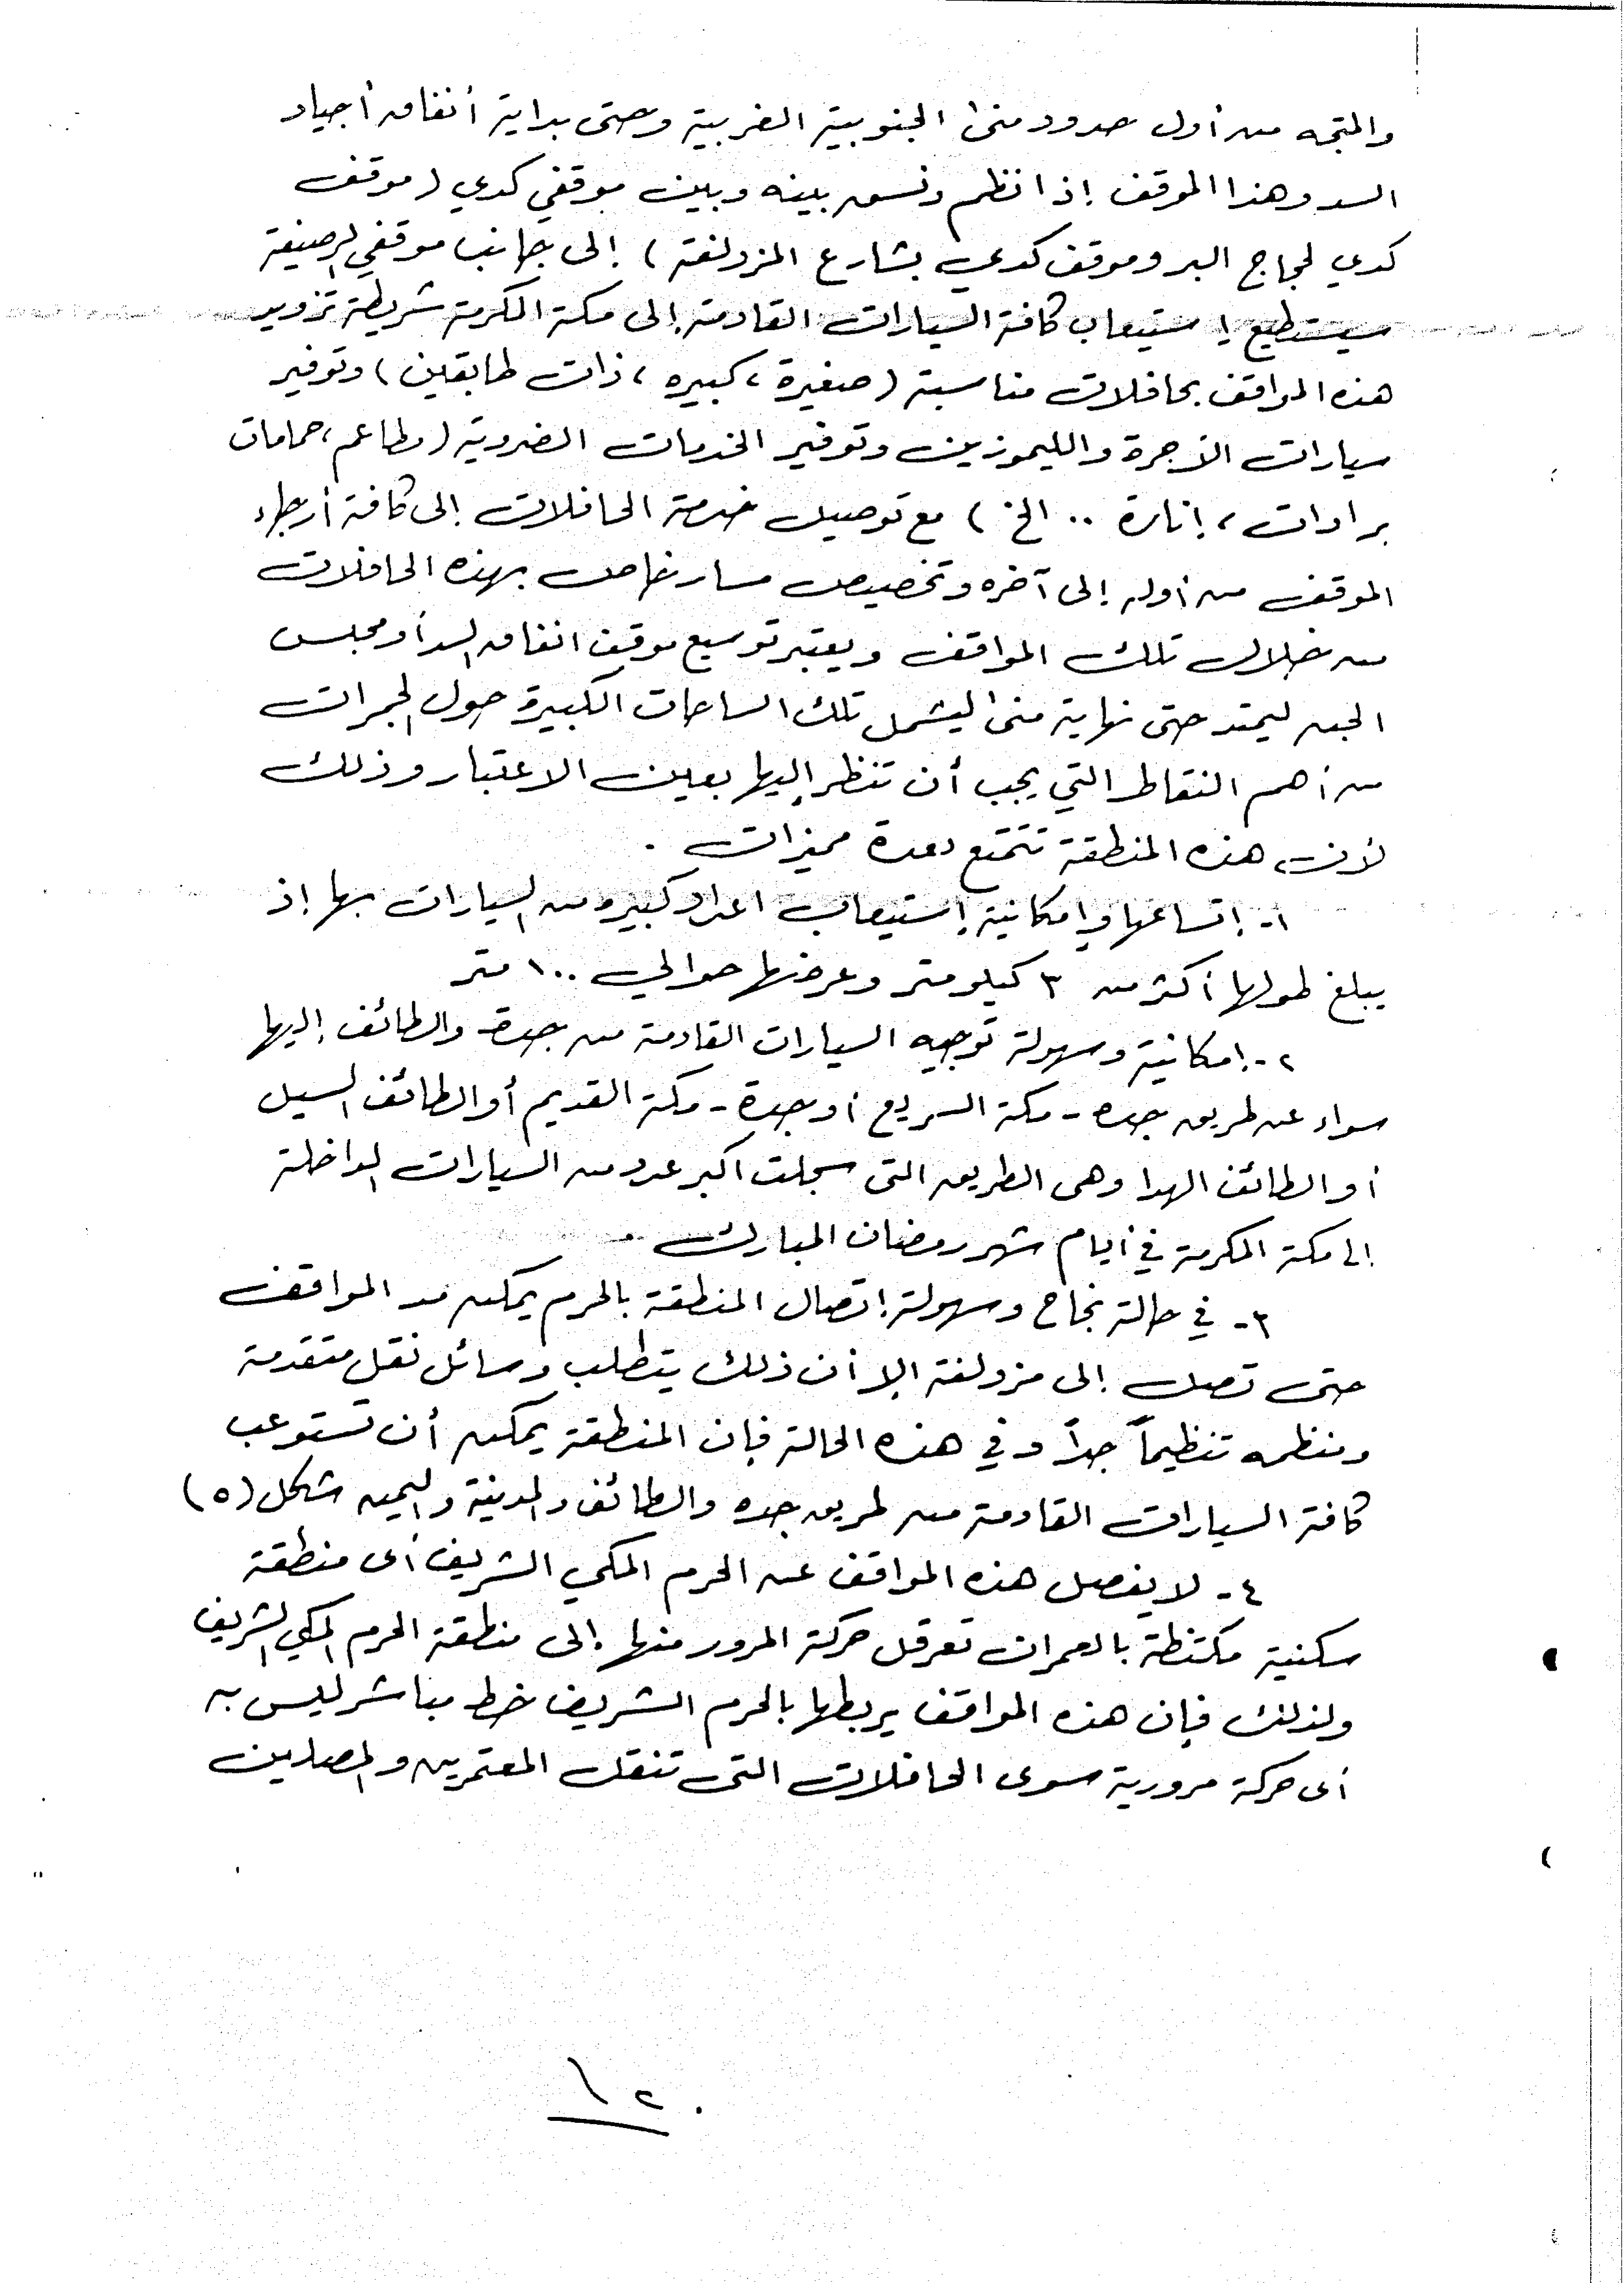 والمتجه من أول حدود منىٰ الجنوبية الغربية وحتى بداية أنفاق أجياد
السد وهذا الموقف إذا نظم ونسق بينه وبين موقفي كدي (موقف
كدي لحجاج البر وموقف كدي بشارع المزدلفة) إلى جانب موقفي الرصيفة
سيستطيع إستيعاب كافة السيارات القادمة إلى مكة المكرمة شريطة تزويد
هذه المواقف بحافلات مناسبة (صغيرة، كبيره، ذات طابقين) وتوفير
سيارات الأجرة والليموزين وتوفير الخدمات الضروية (مطاعم، حمامات
برادات، إنارة .. الخ) مع توصيل خدمة الحافلات إلى كافة أرجاء
الموقف من أوله إلى آخره وتخصيص مسار خاص بهذه الحافلات
من خلال تلك المواقف ويعتبر توسيع موقف انفاق السد أو مجلس
الجن ليمتد حتى نهاية منىٰ ليشمل تلك الساحات الكبيرة حول الجمرات
من أهم النقاط التي يجب أن تنظر إليها بعين الاعتبار وذلك
لأن هذه المنطقة تتمتع بعدة مميزات .
١- إتساعها وإمكانية إستيعاب اعداد كبيره من السيارات بها إذ
يبلغ طولها أكثر من ٣ كيلو متر وعرضها حوالي ١٠٠ متر
٢- إمكانية وسهولة توجيه السيارات القادمة من جدة والطائف إليها
سواء عن طريق جده - مكة السريع أو جدة - مكة القديم أو الطائف السيل
أو الطائف الهدا وهى الطريق التى سجلت اكبر عدد من السيارات الداخلة
الى مكة المكرمة في أيام شهر رمضان المبارك .
٣- في حالة نجاح وسهولة إتصال المنطقة بالحرم يمكن مد المواقف
حتى تصل إلى مزدلفة إلا أن ذلك يتطلب وسائل نقل متقدمة
ومنظمه تنظيماً جداً وفي هذه الحالة فإن المنطقة يمكن أن تستوعب
كافة السيارات القادمة من طريق جده والطائف والمدينة واليمن شكل (٥)
٤- لا يفصل هذه المواقف عن الحرم المكي الشريف أى منطقة
سكنية مكتظة بالعمران تعرقل حركة المرور منها إلى منطقة الحرم المكي الشريف
ولذلك فإن هذه المواقف يربطها بالحرم الشريف خط مباشر ليس به
أى حركة مرورية سوى الحافلات التى تنقل المعتمرين والمصلين
١٢